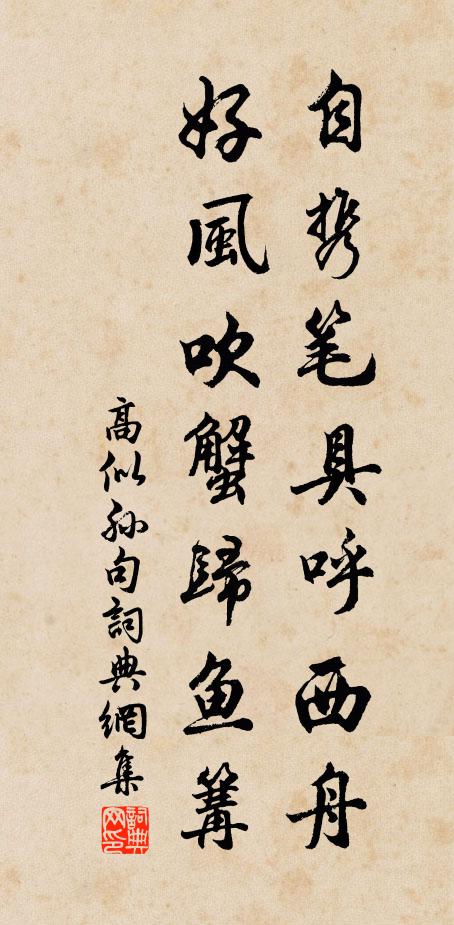 自携笔具呼西舟
好風吹蟹歸鱼篝
高似孙句詞典網集
詞典网印